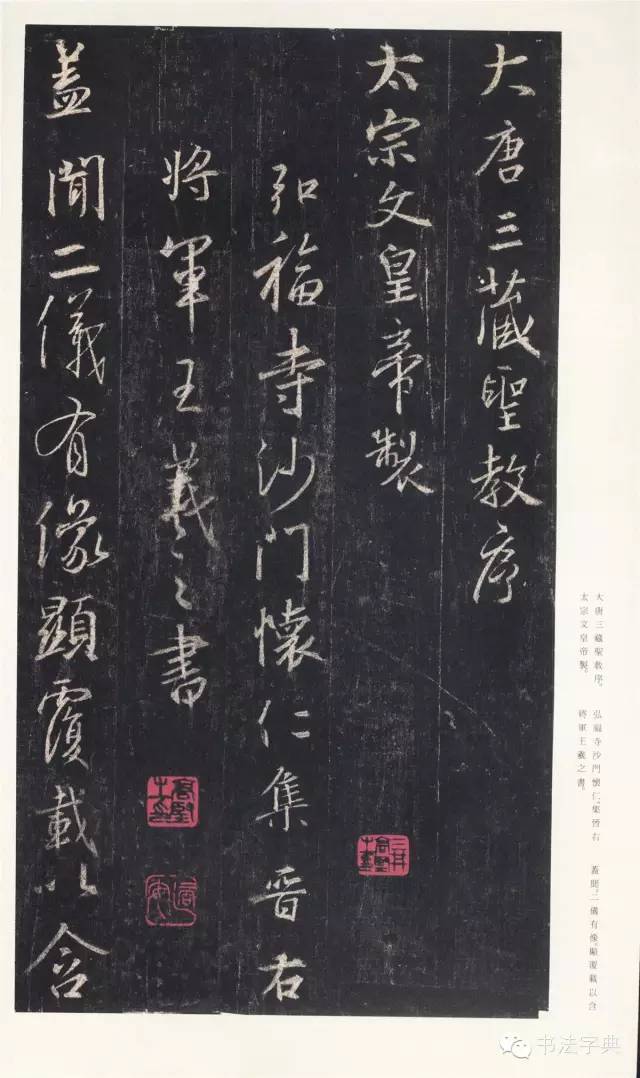 大唐三藏聖教序
太宗文皇帝製
弘福寺沙門懷仁集晉右
將軍王羲之書
蓋聞二儀有像顯覆載以含
大唐三藏聖教序。 弘福寺沙門懷仁集晉右 蓋聞二儀有像，顯覆載以含
太宗文皇帝製。 將軍王羲之書。
书法字典